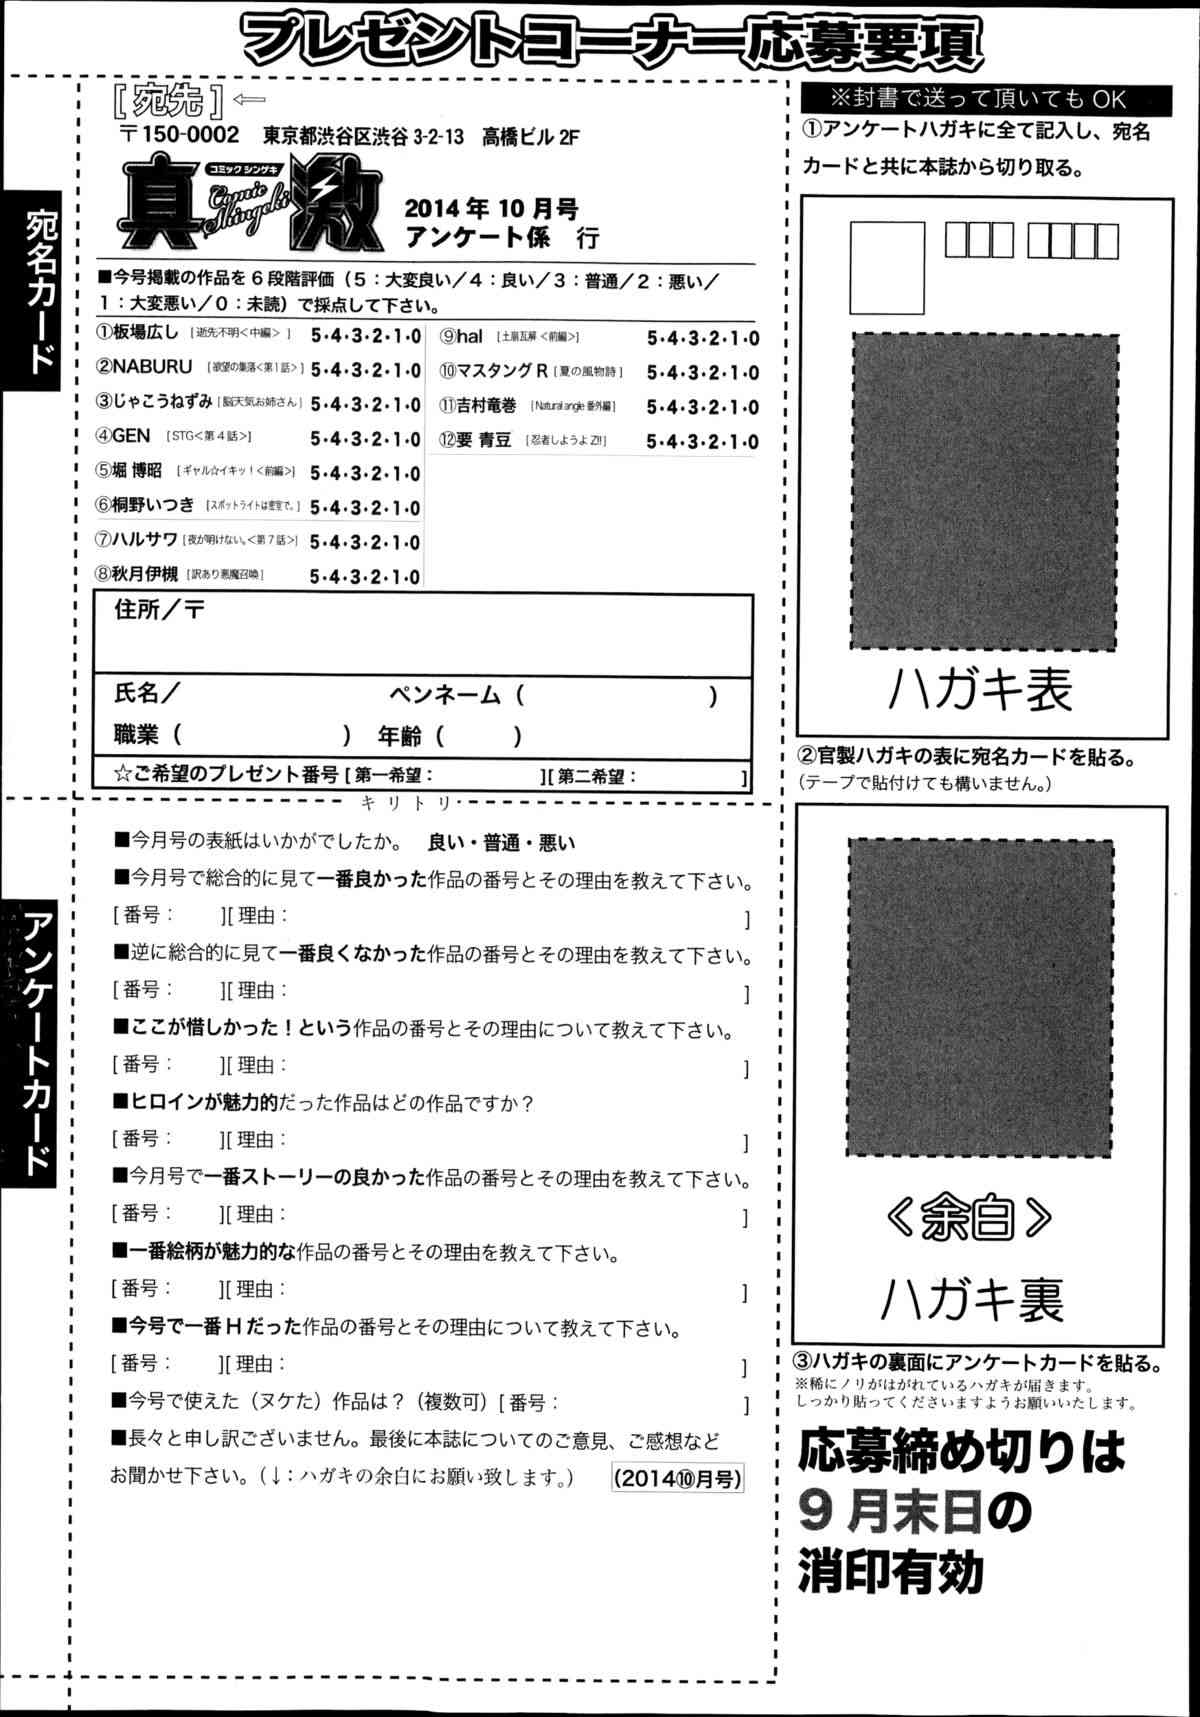 プレゼントコーナー応募要項
[宛先]
〒150-0002 東京都渋谷区渋谷 3-2-13 高橋ビル 2F
コミックシンゲキ
真激
Comic Shingeki
2014年10月号
アンケート係 行
■今号掲載の作品を6段階評価（5：大変良い／4：良い／3：普通／2：悪い／
1：大変悪い／0：未読）で採点して下さい。
①板場広し [逝先不明<中編>] 5・4・3・2・1・0
②NABURU [欲望の集落<第1話>] 5・4・3・2・1・0
③じゃこうねずみ [脳天気お姉さん] 5・4・3・2・1・0
④GEN [STG<第4話>] 5・4・3・2・1・0
⑤堀 博昭 [ギャル☆イキッ！<前編>] 5・4・3・2・1・0
⑥桐野いつき [スポットライトは密室で。] 5・4・3・2・1・0
⑦ハルサワ [夜が明けない。<第7話>] 5・4・3・2・1・0
⑧秋月伊槻 [訳あり悪魔召喚] 5・4・3・2・1・0
⑨hal [土崩瓦解<前編>] 5・4・3・2・1・0
⑩マスタングR [夏の風物詩] 5・4・3・2・1・0
⑪吉村竜巻 [Natural angle 番外編] 5・4・3・2・1・0
⑫要 青豆 [忍者しようよZ!!] 5・4・3・2・1・0
住所／〒
氏名／ ペンネーム（ ）
職業（ ） 年齢（ ）
☆ご希望のプレゼント番号 [第一希望： ][第二希望： ]
キリトリ
宛名カード
■今月号の表紙はいかがでしたか。 良い・普通・悪い
■今月号で総合的に見て一番良かった作品の番号とその理由を教えて下さい。
[番号： ][理由： ]
■逆に総合的に見て一番良くなかった作品の番号とその理由を教えて下さい。
[番号： ][理由： ]
■ここが惜しかった！という作品の番号とその理由について教えて下さい。
[番号： ][理由： ]
■ヒロインが魅力的だった作品はどの作品ですか？
[番号： ][理由： ]
■今月号で一番ストーリーの良かった作品の番号とその理由を教えて下さい。
[番号： ][理由： ]
■一番絵柄が魅力的な作品の番号とその理由を教えて下さい。
[番号： ][理由： ]
■今号で一番Hだった作品の番号とその理由について教えて下さい。
[番号： ][理由： ]
■今号で使えた（ヌケた）作品は？（複数可）[番号： ]
■長々と申し訳ございません。最後に本誌についてのご意見、ご感想など
お聞かせ下さい。（↓：ハガキの余白にお願い致します。） (2014⑩月号)
アンケートカード
※封書で送って頂いてもOK
①アンケートハガキに全て記入し、宛名
カードと共に本誌から切り取る。
ハガキ表
②官製ハガキの表に宛名カードを貼る。
（テープで貼付けても構いません。）
<余白>
ハガキ裏
③ハガキの裏面にアンケートカードを貼る。
※稀にノリがはがれているハガキが届きます。
しっかり貼ってくださいますようお願いいたします。
応募締め切りは
9月末日の
消印有効